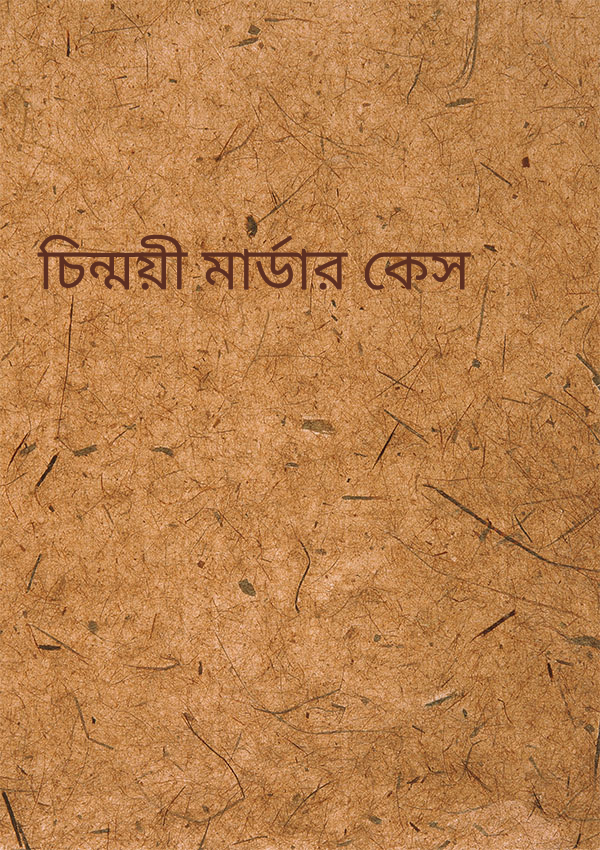 চিন্ময়ী মার্ডার কেস